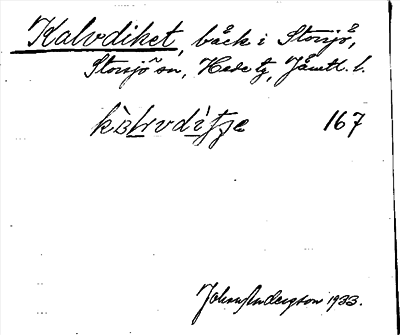 Kalvdiket, bäck i Storsjö,
Storsjö sn, Hede tg, Jämtl. l.
167
Johan Anderson 1933.